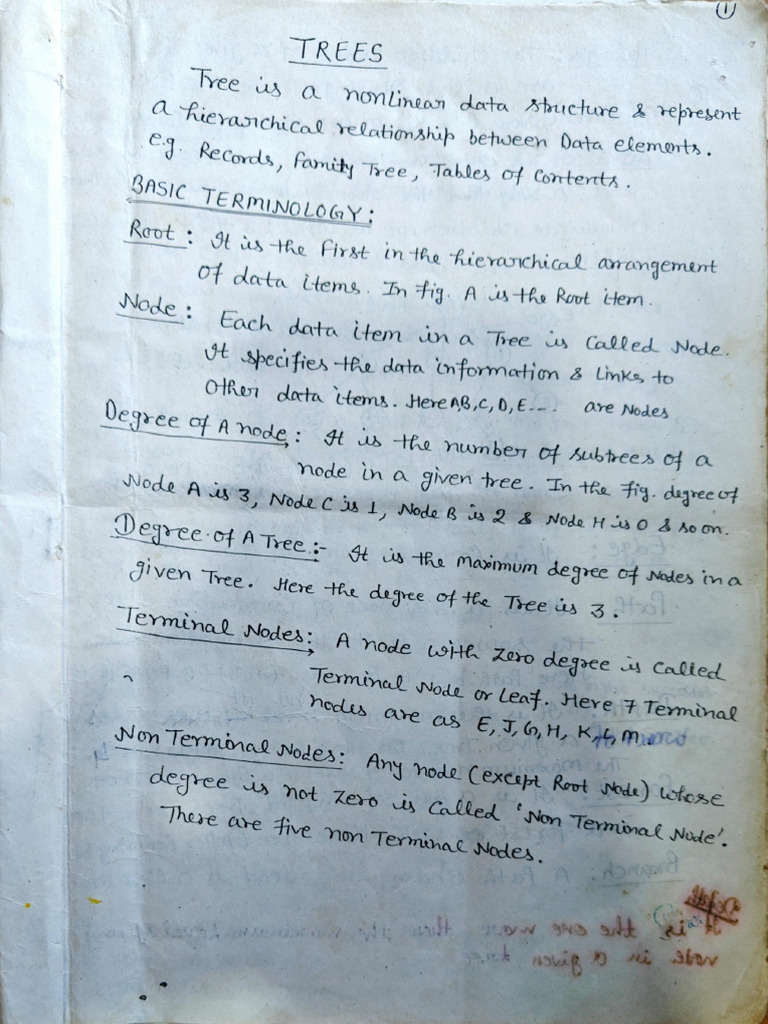 1
TREES
Tree is a nonlinear data structure & represent
a hierarchical relationship between Data elements.
e.g. Records, family Tree, Tables of Contents.
BASIC TERMINOLOGY:
Root: It is the first in the hierarchical arrangement
of data items. In fig. A is the Root item.
Node: Each data item in a Tree is Called Node.
It specifies the data information & links to
Other data items. Here A,B,C,D,E... are Nodes
Degree of A node: It is the number of subtrees of a
node in a given tree. In the fig. degree of
Node A is 3, Node C is 1, Node B is 2 & Node H is 0 & so on.
Degree of A Tree:- It is the maximum degree of Nodes in a
given Tree. Here the degree of the Tree is 3.
Terminal Nodes: A node with zero degree is Called
Terminal Node or Leaf. Here 7 Terminal
nodes are as E, J, G, H, K, L, M.
Non Terminal Nodes: Any node (except Root Node) whose
degree is not zero is Called 'Non Terminal Node'.
There are five non Terminal Nodes.